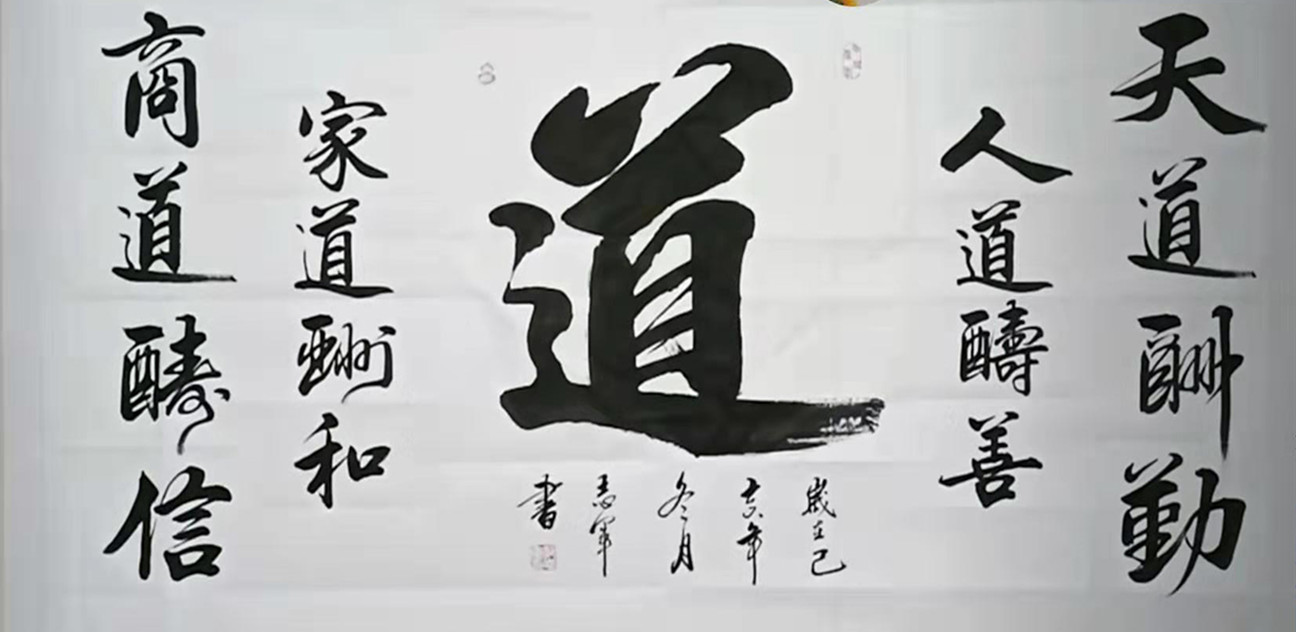 天道酬勤
人道醻善
道
歲在己
亥年
冬月
書
家道酬和
商道醻信